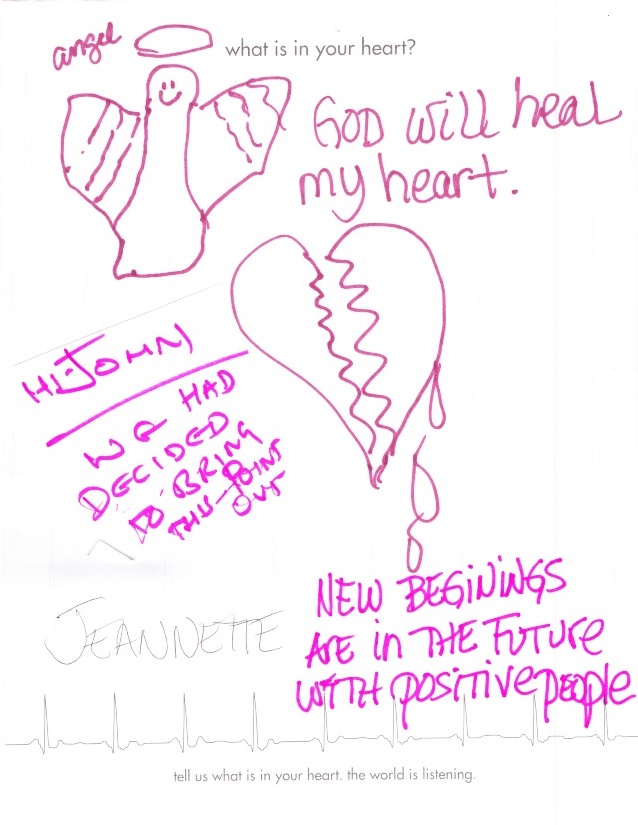 angel
what is in your heart?
GOD will heal
my heart.
HI-JOHN
WE HAD
DECIDED
TO BRING
THIS POINT
OUT
NEW BEGININGS
ARE in THE FUTURE
WITH positive people
JEANNETTE
tell us what is in your heart. the world is listening.